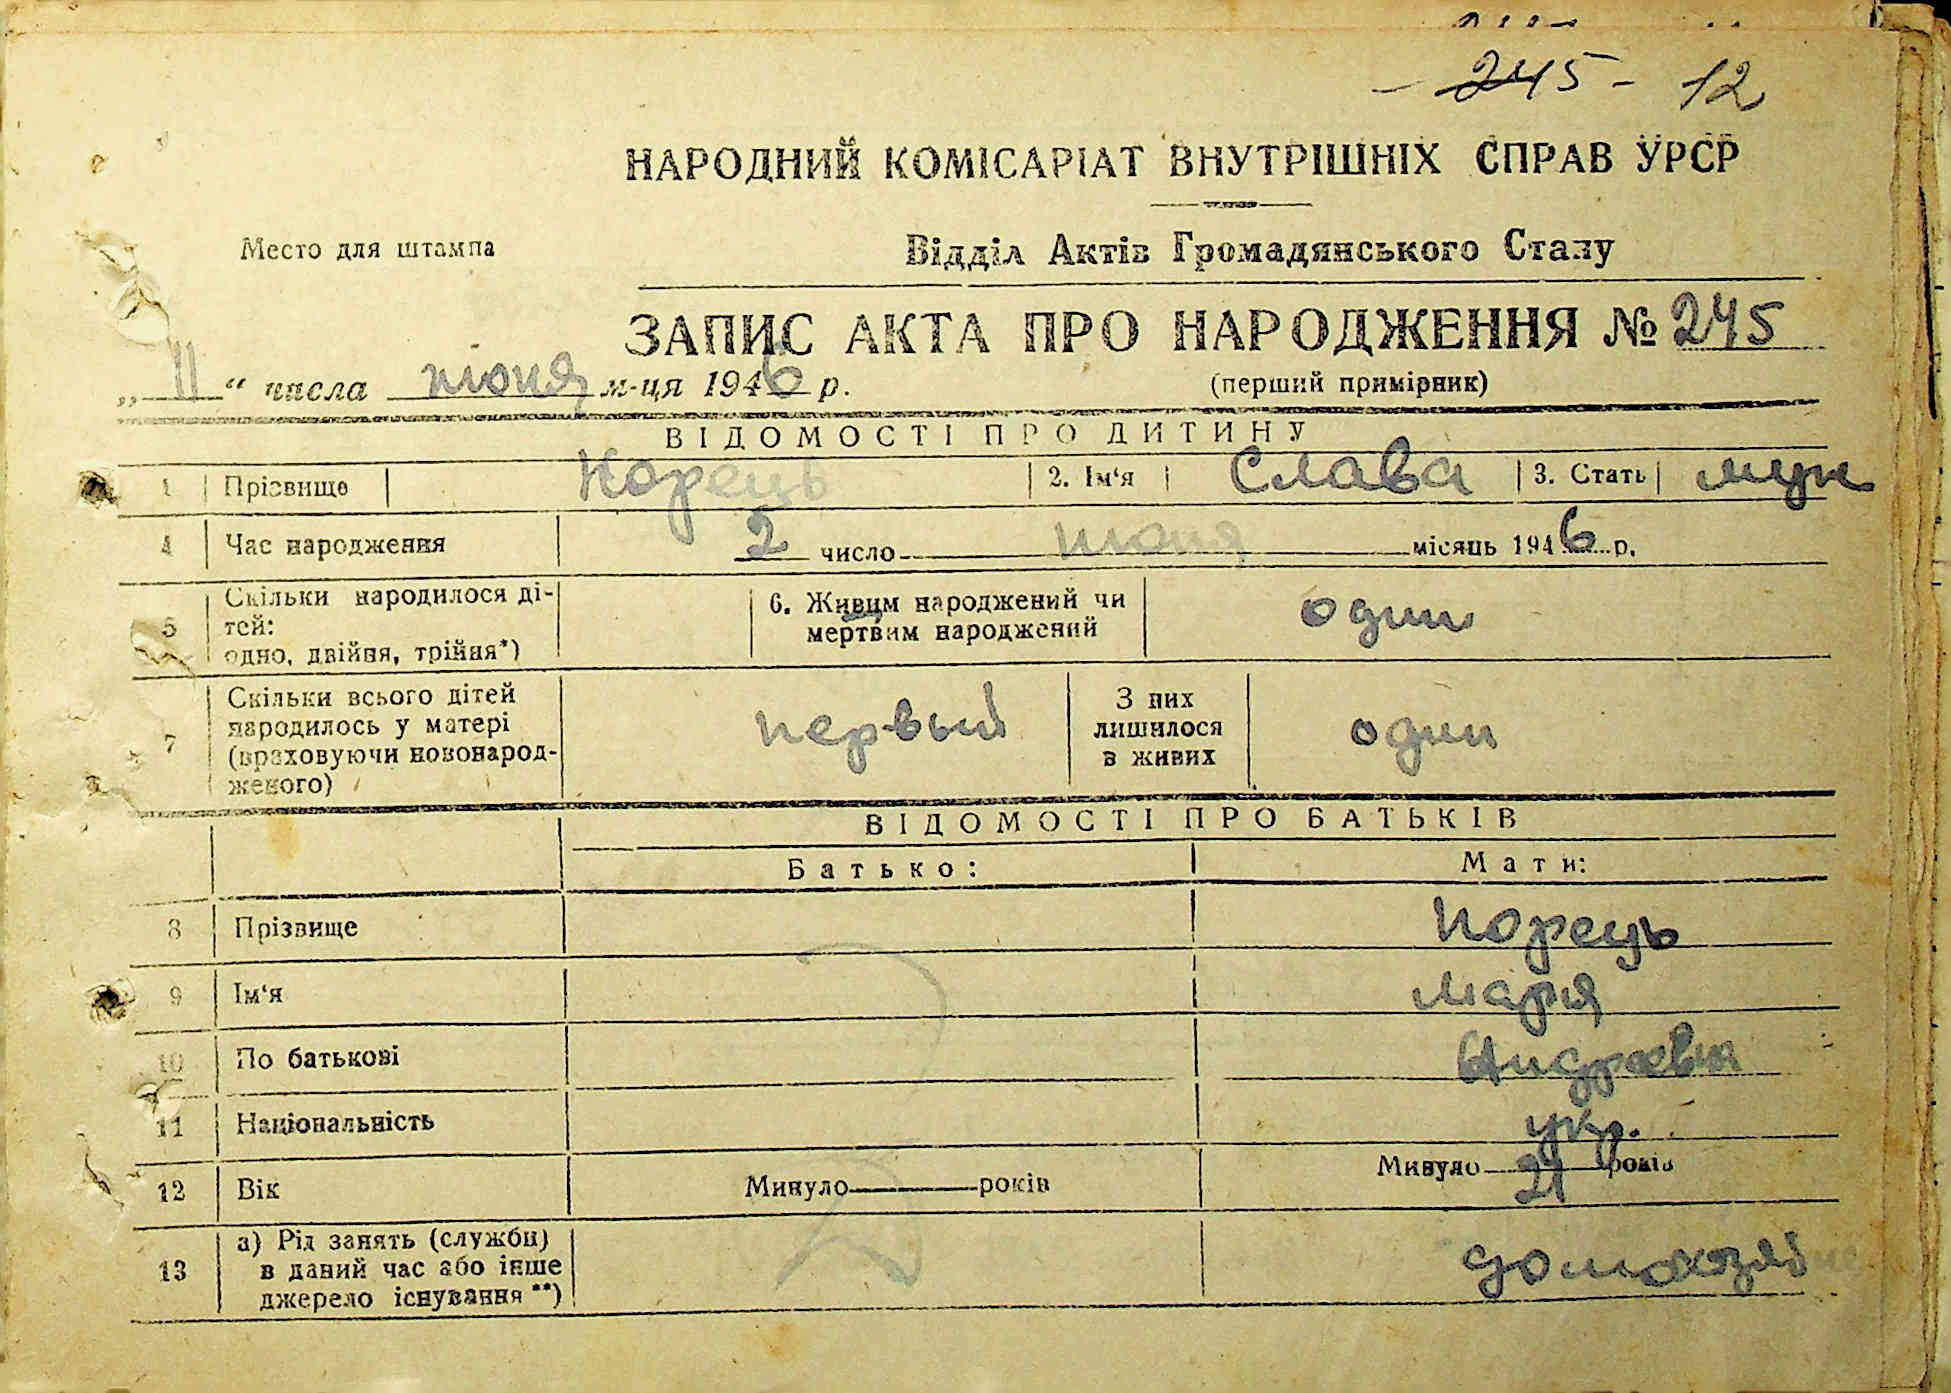 - 245 - 12
НАРОДНИЙ КОМІСАРІАТ ВНУТРІШНІХ СПРАВ УРСР
Место для штампа
Відділ Актів Громадянського Стану
ЗАПИС АКТА ПРО НАРОДЖЕННЯ № 245
„ 11 “ числа июня м-ця 1946 р.
(перший примірник)
ВІДОМОСТІ ПРО ДИТИНУ
1 Прізвище Корець 2. Ім‘я Слава 3. Стать муж
4 Час народження 2 число июня місяць 1946 р.
5 Скільки народилося ді-
тей:
одно, двійня, трійня*)
6. Живим народжений чи
мертвим народжений
один
7 Скільки всього дітей
народилось у матері
(враховуючи новонарод-
женого)
первый
З них
лишилося
в живих
один
ВІДОМОСТІ ПРО БАТЬКІВ
Батько: Мати:
8 Прізвище Корець
9 Ім‘я Мария
10 По батькові Андреевна
11 Національність укр.
12 Вік Минуло років Минуло 21 років
13 а) Рід занять (служби)
в даний час або інше
джерело існування **)
домохозяй